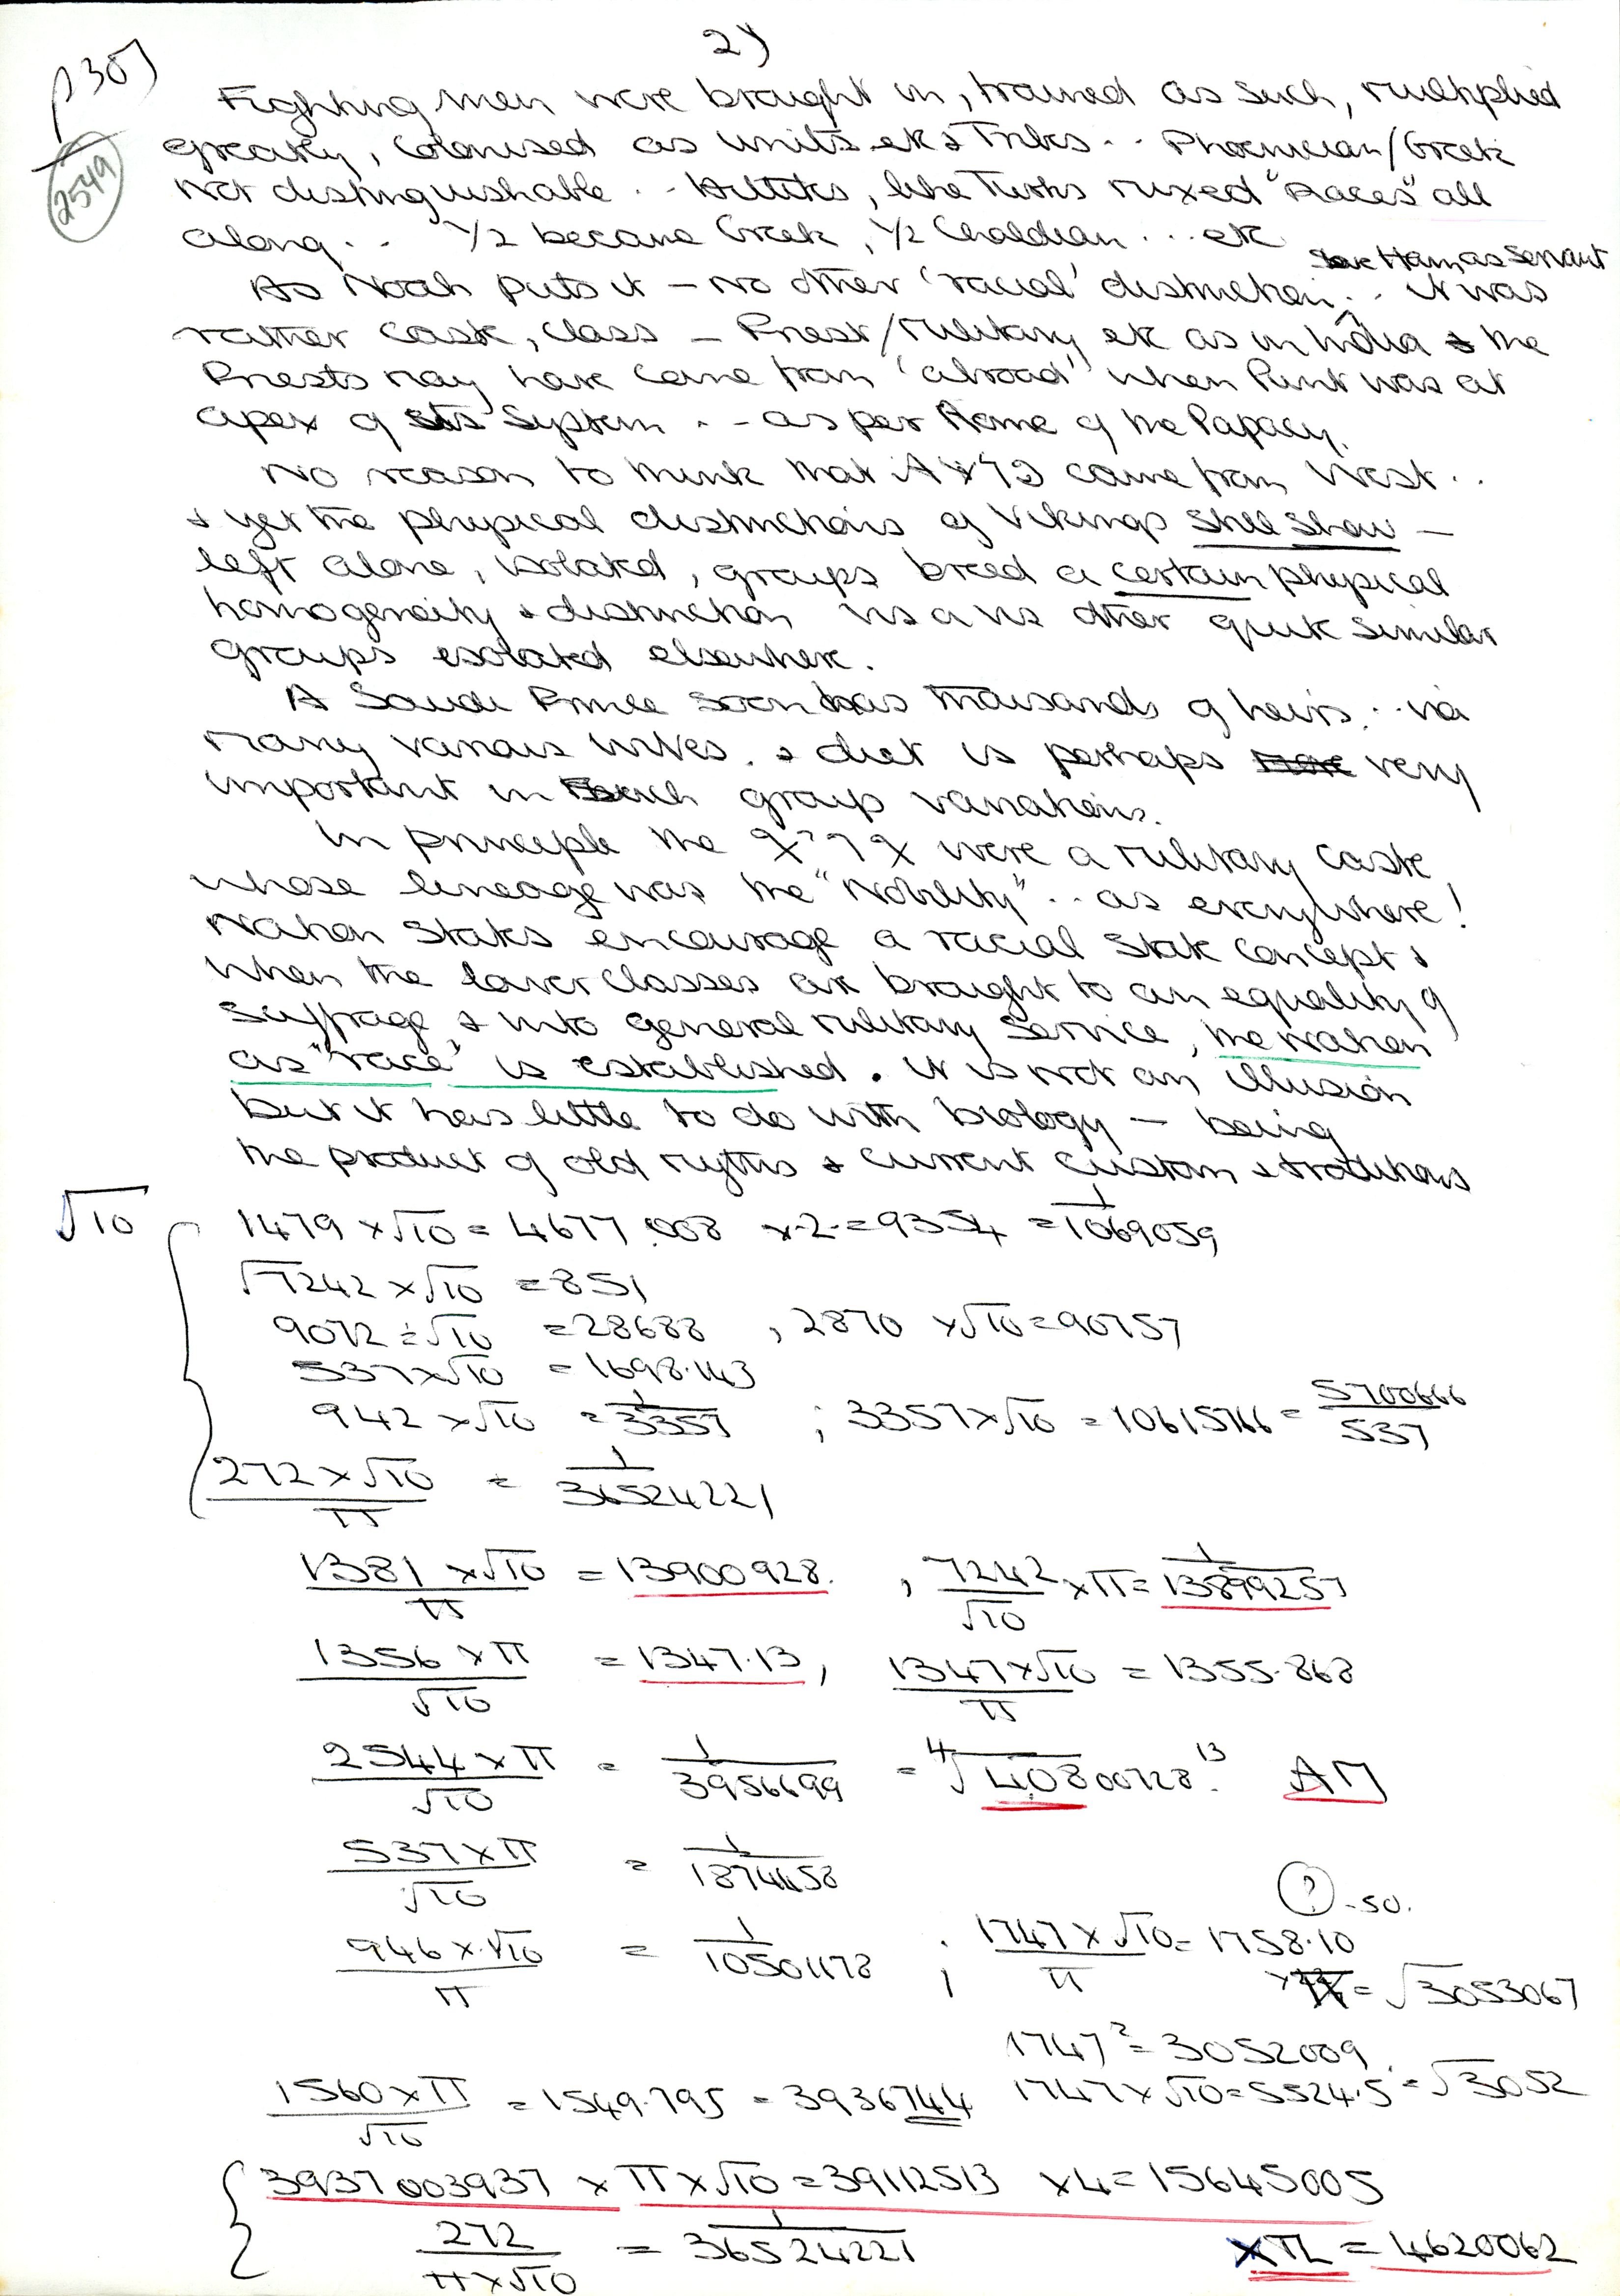 2)
130)
2549
Fighting men were brought in, trained as such, multiplied
greatly, colonised as units etc & Tribes .. Phoenician/Greek
not distinguishable .. Hittites, like Turks mixed "Races" all
along .. 1/2 became Greek, 1/2 Chaldean ... etc
Ham as Servant
As Noah puts it – no other 'racial' distinction .. it was
rather caste, class – Priest/military etc as in India & the
Priests may have come from 'abroad' when Punt was at
apex of its System .. – as per Rome of the Papacy.
No reason to think that came from West ..
& yet the physical distinctions of Vikings still show –
left alone, isolated, groups breed a certain physical
homogeneity & distinction vis a vis other quite similar
groups isolated elsewhere.
A Saudi Prince soon has thousands of heirs .. via
many various wives. & diet is perhaps very
important in such group variations.
In principle the were a military caste
whose lineage was the "Nobility" .. as everywhere!
Nation States encourage a racial State concept &
when the lower classes are brought to an equality of
suffrage & into general military service, the nation
as "race" is established. It is not an illusion
but it has little to do with biology – being
the product of old myths & current custom & traditions
√10
1479 × √10 = 4677.008 × 2 = 9354 = 1/1069059
√7242 × √10 = 851
9072 ÷ √10 = 28688 , 2870 × √10 = 90757
537 × √10 = 1698.143
942 × √10 = 1/3357 ; 3357 × √10 = 10615766 = 5700666/537
272 × √10 / π = 1/36524221
1381 × √10 / π = 13900928. , 7242/√10 × π = 1/13899257
1356 × π / √10 = 1347.13 , 1347 × √10 / π = 1355.868
2544 × π / √10 = 1/3956699 = ⁴√40800728.¹³
537 × π / √10 = 1/1874458
? .50.
946 × √10 / π = 1/10501178 ; 1747 × √10 / π = 1758.10
= √3053067
1747² = 3052009
1560 × π / √10 = 1549.795 = 3936744 1747 × √10 = 5524.5 = √3052
3937003937 × π × √10 = 39112513 × 4 = 15645005
272 / π × √10 = 1/36524221 = 4620062